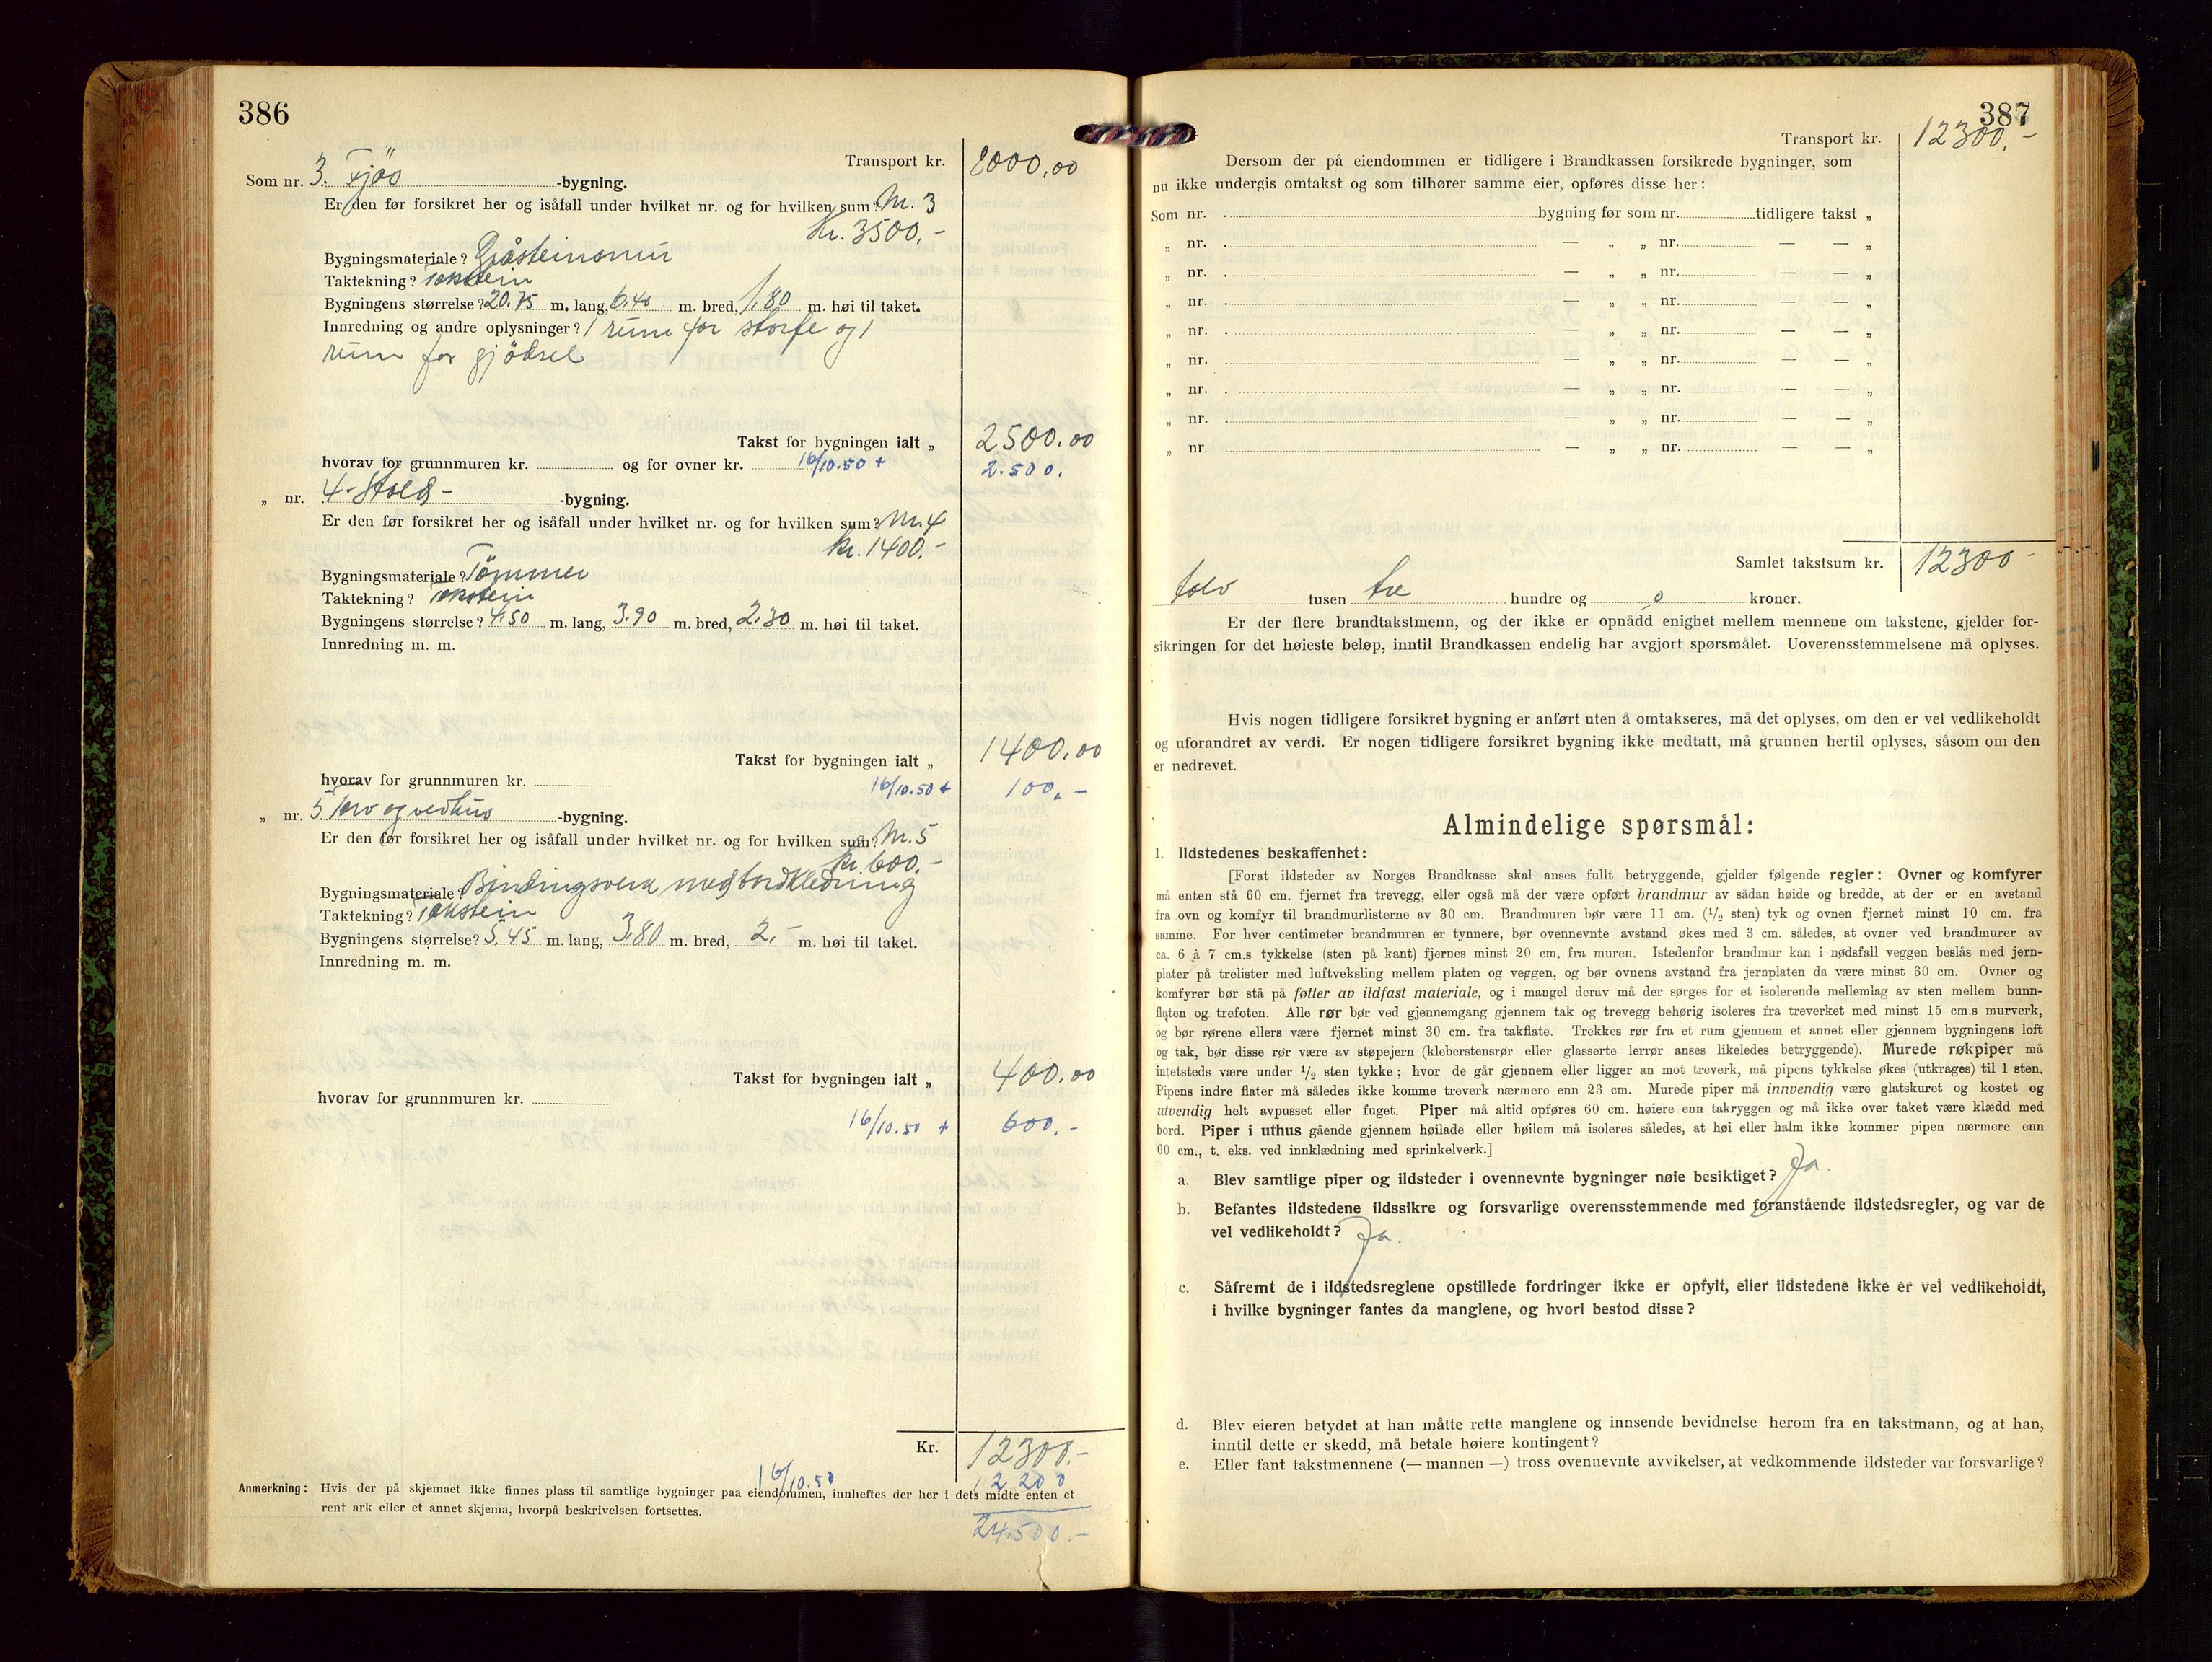 386
Transport kr. 8000.00
Som nr. 3. Fjös -bygning.
Er den før forsikret her og isåfall under hvilket nr. og for hvilken sum? Nr. 3
Kr. 3500.-
Bygningsmateriale? Gråsteinsmur
Taktekning? Takstein
Bygningens størrelse? 20.75 m. lang, 6.40 m. bred, 1.80 m. høi til taket.
Innredning og andre oplysninger? 1 rum for storfe og 1
rum for gjödsel
Takst for bygningen ialt „ 2500.00
hvorav for grunnmuren kr. og for ovner kr. 16/10.50 + 2.500.
„ nr. 4 - Stole - -bygning.
Er den før forsikret her og isåfall under hvilket nr. og for hvilken sum? Nr. 4
kr. 1400.-
Bygningsmateriale? Tömmer
Taktekning? Takstein
Bygningens størrelse? 4.50 m. lang, 3.90 m. bred, 2.30 m. høi til taket.
Innredning m. m.
Takst for bygningen ialt „ 1400.00
hvorav for grunnmuren kr. 16/10.50 + 100.-
„ nr. 5. Torv og vedhus -bygning.
Er den før forsikret her og isåfall under hvilket nr. og for hvilken sum? Nr. 5
kr. 600.-
Bygningsmateriale? Bindingsverk med bordkledning
Taktekning? Takstein
Bygningens størrelse? 5.45 m. lang, 3.80 m. bred, 2.- m. høi til taket.
Innredning m. m.
Takst for bygningen ialt „ 400.00
hvorav for grunnmuren kr.
16/10.50 + 600.-
Kr. 12300.-
16/10.50 12200
Anmerkning: Hvis der på skjemaet ikke finnes plass til samtlige bygninger paa eiendommen, innheftes der her i dets midte enten et
rent ark eller et annet skjema, hvorpå beskrivelsen fortsettes.
24.500.-
387
Transport kr. 12300.-
Dersom der på eiendommen er tidligere i Brandkassen forsikrede bygninger, som
nu ikke undergis omtakst og som tilhører samme eier, opføres disse her:
Som nr. bygning før som nr. tidligere takst „
„ nr. — „ „ nr. — — „
„ nr. — „ „ nr. — — „
„ nr. — „ „ nr. — — „
„ nr. — „ „ nr. — — „
„ nr. — „ „ nr. — — „
„ nr. — „ „ nr. — — „
„ nr. — „ „ nr. — — „
„ nr. — „ „ nr. — — „
Samlet takstsum kr. 12300-
tolv tusen tre hundre og o kroner.
Er der flere brandtakstmenn, og der ikke er opnådd enighet mellem mennene om takstene, gjelder for-
sikringen for det høieste beløp, inntil Brandkassen endelig har avgjort spørsmålet. Uoverensstemmelsene må oplyses.
Hvis nogen tidligere forsikret bygning er anført uten å omtakseres, må det oplyses, om den er vel vedlikeholdt
og uforandret av verdi. Er nogen tidligere forsikret bygning ikke medtatt, må grunnen hertil oplyses, såsom om den
er nedrevet.
Almindelige spørsmål:
1. Ildstedenes beskaffenhet:
[Forat ildsteder av Norges Brandkasse skal anses fullt betryggende, gjelder følgende regler: Ovner og komfyrer
må enten stå 60 cm. fjernet fra trevegg, eller også må der være opført brandmur av sådan høide og bredde, at der er en avstand
fra ovn og komfyr til brandmurlisterne av 30 cm. Brandmuren bør være 11 cm. (1/2 sten) tyk og ovnen fjernet minst 10 cm. fra
samme. For hver centimeter brandmuren er tynnere, bør ovennevnte avstand økes med 3 cm. således, at ovner ved brandmurer av
ca. 6 à 7 cm.s tykkelse (sten på kant) fjernes minst 20 cm. fra muren. Istedenfor brandmur kan i nødsfall veggen beslås med jern-
plater på trelister med luftveksling mellem platen og veggen, og bør ovnens avstand fra jernplaten da være minst 30 cm. Ovner og
komfyrer bør stå på føtter av ildfast materiale, og i mangel derav må der sørges for et isolerende mellemlag av sten mellem bunn-
flaten og trefoten. Alle rør bør ved gjennemgang gjennem tak og trevegg behørig isoleres fra treverket med minst 15 cm.s murverk,
og bør rørene ellers være fjernet minst 30 cm. fra takflate. Trekkes rør fra et rum gjennem et annet eller gjennem bygningens loft
og tak, bør disse rør være av støpejern (kleberstensrør eller glasserte lerrør anses likeledes betryggende). Murede røkpiper må
intetsteds være under 1/2 sten tykke; hvor de går gjennem eller ligger an mot treverk, må pipens tykkelse økes (utkrages) til 1 sten.
Pipens indre flater må således ikke komme treverk nærmere enn 23 cm. Murede piper må innvendig være glatskuret og kostet og
utvendig helt avpusset eller fuget. Piper må altid opføres 60 cm. høiere enn takryggen og må ikke over taket være klædd med
bord. Piper i uthus gående gjennem høilade eller høilem må isoleres således, at høi eller halm ikke kommer pipen nærmere enn
60 cm., t. eks. ved innklædning med sprinkelverk.]
a. Blev samtlige piper og ildsteder i ovennevnte bygninger nøie besiktiget? Ja.
b. Befantes ildstedene ildssikre og forsvarlige overensstemmende med foranstående ildstedsregler, og var de
vel vedlikeholdt? Ja.
c. Såfremt de i ildstedsreglene opstillede fordringer ikke er opfylt, eller ildstedene ikke er vel vedlikeholdt,
i hvilke bygninger fantes da manglene, og hvori bestod disse?
d. Blev eieren betydet at han måtte rette manglene og innsende bevidnelse herom fra en takstmann, og at han,
inntil dette er skedd, må betale høiere kontingent?
e. Eller fant takstmennene (— mannen —) tross ovennevnte avvikelser, at vedkommende ildsteder var forsvarlige?